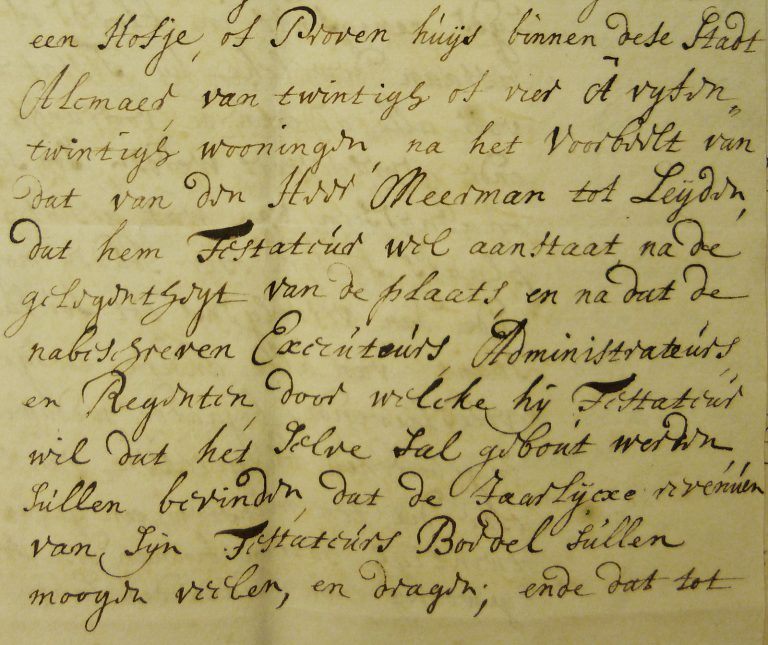 een Hofje, of Proven huijs binnen dese Stadt
Alcmaer, van twintigh of vier à vyfen„
twintigh wooningen, na het Voorbeelt van
dat van den Heer Meerman tot Leijden,
dat hem Testateúr wel aanstaat, na de
gelegentheyt van de plaats, en na dat de
nabeschreven Executeúrs, Administrateúrs,
en Regenten, door welcke hij Testateúr
wil dat het selve sal geboút werden
súllen bevinden, dat de Jaarlijcxe revenúen
van sijn Testateúrs Boedel súllen
moogen veelen, en dragen; ende dat tot